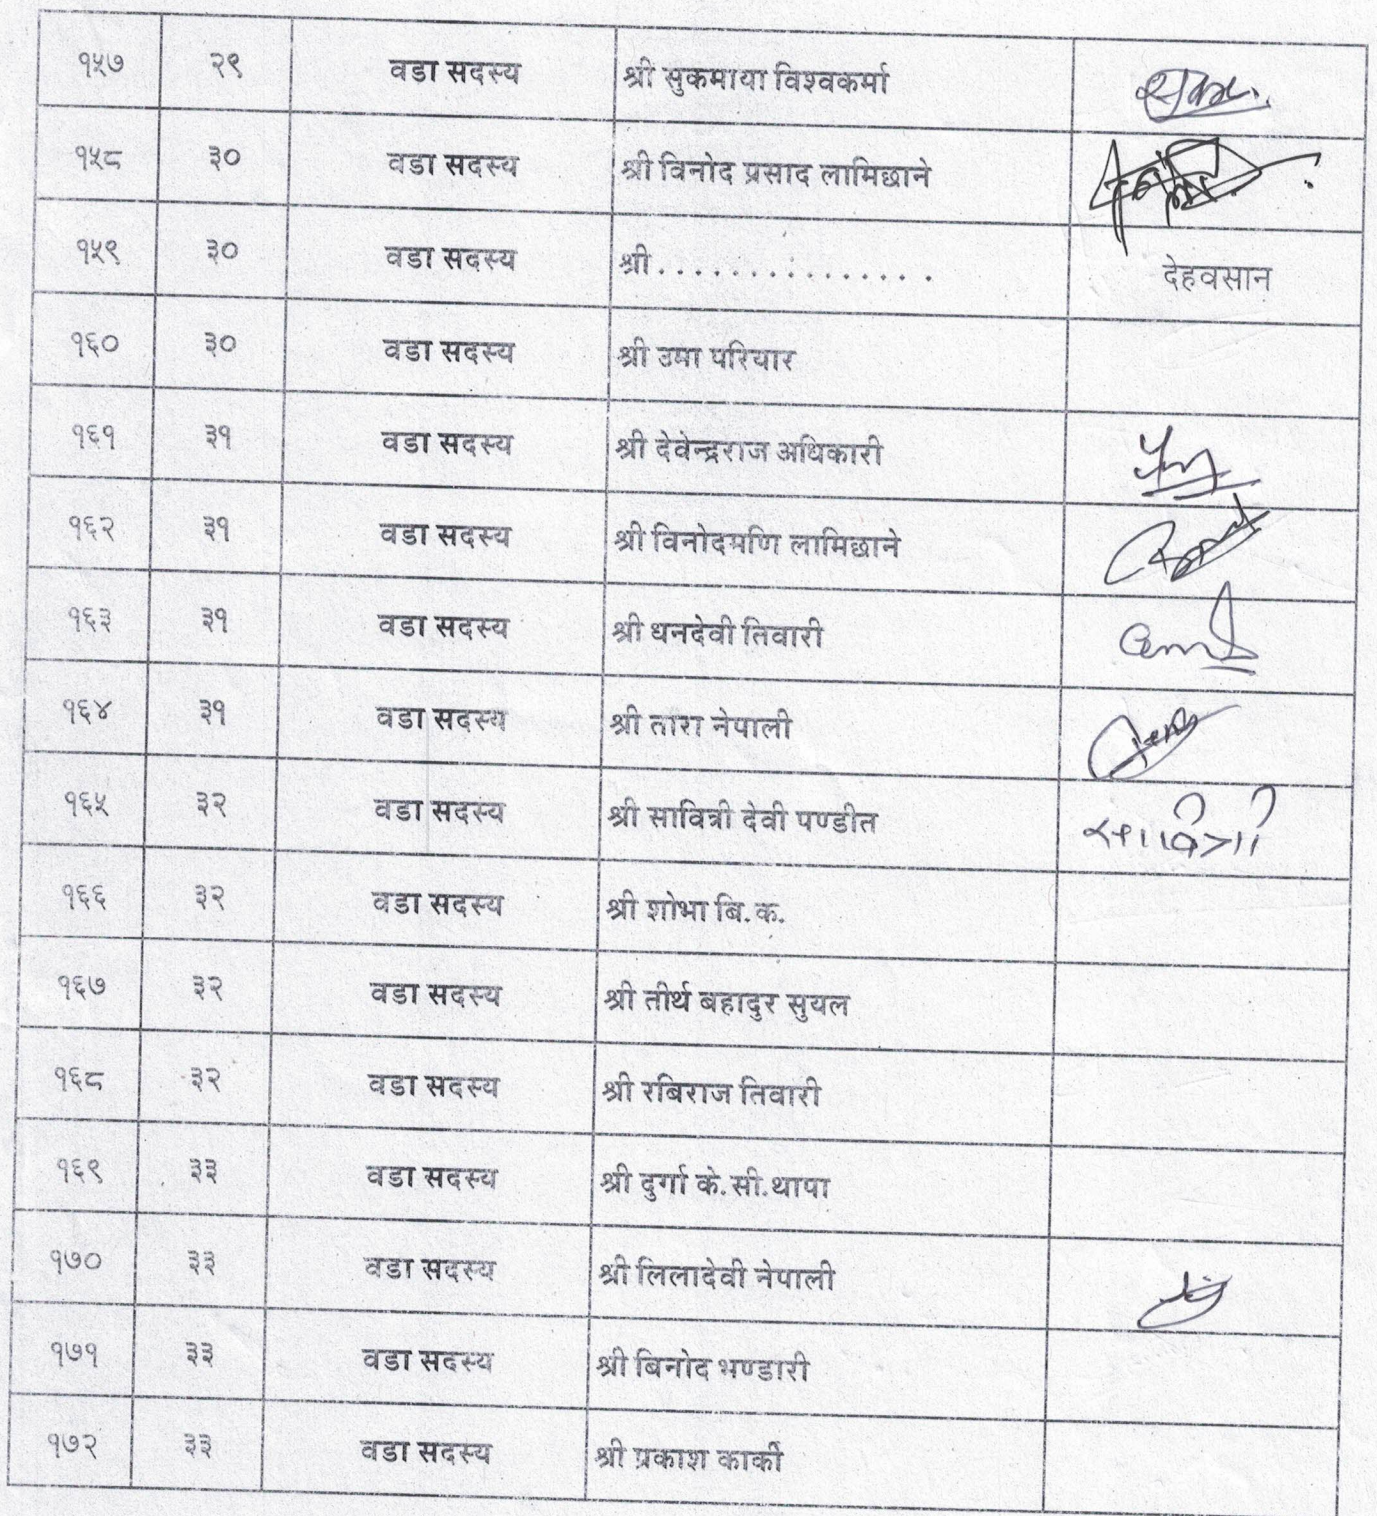 १५७ २९ वडा सदस्य श्री सुकमाया विश्वकर्मा
१५८ ३० वडा सदस्य श्री विनोद प्रसाद लामिछाने
१५९ ३० वडा सदस्य श्री . . . . . . . . . . . . . . . देहवसान
१६० ३० वडा सदस्य श्री उमा परियार
१६१ ३१ वडा सदस्य श्री देवेन्द्रराज अधिकारी
१६२ ३१ वडा सदस्य श्री विनोदमणि लामिछाने
१६३ ३१ वडा सदस्य श्री धनदेवी तिवारी
१६४ ३१ वडा सदस्य श्री तारा नेपाली
१६५ ३२ वडा सदस्य श्री सावित्री देवी पण्डीत सावित्री
१६६ ३२ वडा सदस्य श्री शोभा बि.क.
१६७ ३२ वडा सदस्य श्री तीर्थ बहादुर सुयल
१६८ ३२ वडा सदस्य श्री रबिराज तिवारी
१६९ ३३ वडा सदस्य श्री दुर्गा के.सी.थापा
१७० ३३ वडा सदस्य श्री लिलादेवी नेपाली
१७१ ३३ वडा सदस्य श्री बिनोद भण्डारी
१७२ ३३ वडा सदस्य श्री प्रकाश कार्की